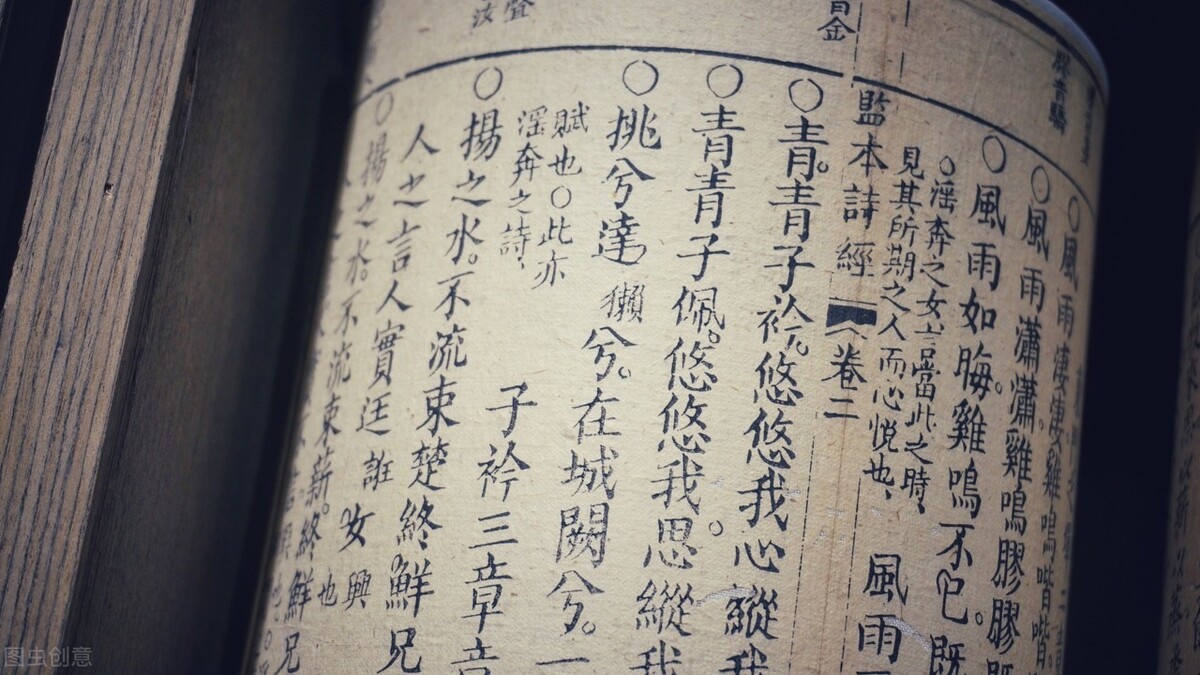 ○風雨淒淒雞鳴喈喈
○風雨瀟瀟雞鳴膠膠
○風雨如晦雞鳴不已。既
○淫奔之女言當此之時、
見其所期之人而心悅也、
風雨三
監本詩經 卷二
○青。青子衿。悠悠我心縱我
○青青子佩。悠悠我思。縱我
○挑兮達
獺
兮。在城闕兮。一
賦也○此亦
淫奔之詩、
子衿三章章
○揚之水。不流束楚終鮮兄
人之言人實迋
誑
女
興
也
○揚之水。不流束薪。終鮮兄
图虫创意